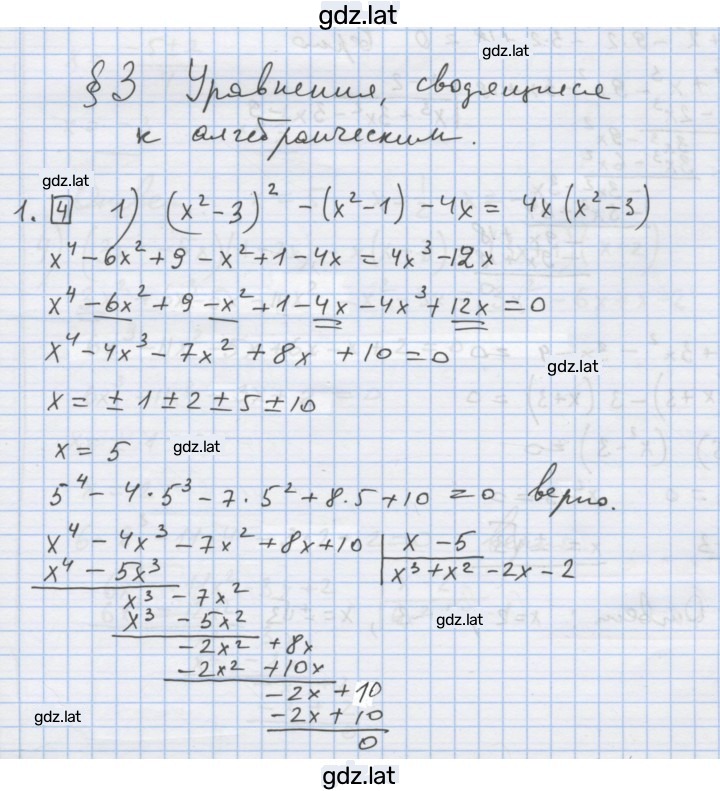 gdz.lat
gdz.lat
§3 Уравнения, сводящиеся
к алгебраическим.
gdz.lat
1. 4 1) (x²-3)² - (x²-1) - 4x = 4x (x²-3)
x⁴ - 6x² + 9 - x² + 1 - 4x = 4x³ - 12x
x⁴ - 6x² + 9 - x² + 1 - 4x - 4x³ + 12x = 0
x⁴ - 4x³ - 7x² + 8x + 10 = 0
gdz.lat
x = ± 1 ± 2 ± 5 ± 10
x = 5 gdz.lat
5⁴ - 4·5³ - 7·5² + 8·5 + 10 = 0 верно.
x⁴ - 4x³ - 7x² + 8x + 10 | x - 5
x⁴ - 5x³ | x³ + x² - 2x - 2
x³ - 7x²
x³ - 5x²
gdz.lat
-2x² + 8x
-2x² + 10x
-2x + 10
-2x + 10
gdz.lat
0
gdz.lat